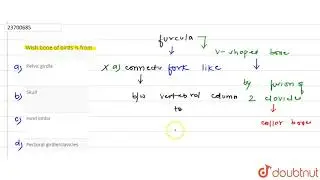 23700685
Wish bone of birds is from
a) Pelvic girdle
b) Skull
c) Hind limbs
d) Pectoral girdle/clavicles
furcula
V-shaped bone
X a) connectv fork like
by fusion of
b/w vertebral column 2 clavicles
to
collar bone
doubtnut